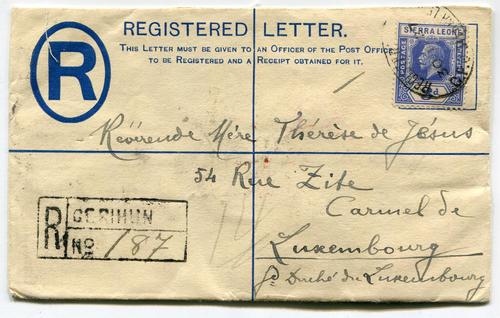 REGISTERED LETTER.
THIS LETTER MUST BE GIVEN TO AN OFFICER OF THE POST OFFICE
TO BE REGISTERED AND A RECEIPT OBTAINED FOR IT.
R
SIERRA LEONE
POSTAGE
Révérende Mère Thérèse de Jésus
54 Rue Zite
Carmel de
Luxembourg
Gd Duché du Luxembourg
R
GERIHUN
No 187